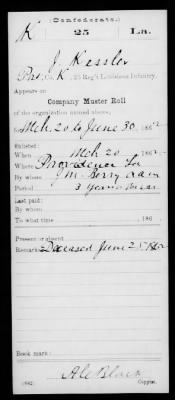 (Confederate.)
K 25 La.
J Kessler
Pvt, Co. K, 25 Reg't Louisiana Infantry.
Appears on
Company Muster Roll
of the organization named above,
for Mch. 20 to June 30, 1862
Enlisted:
When Mch 20, 1862
Where Providence La
By whom J M Berry
Period 3 years or war
Last paid:
By whom
To what time 186 .
Present or absent
Remarks: Deceased June 25 1862
Book mark:
(642)
Copyist.